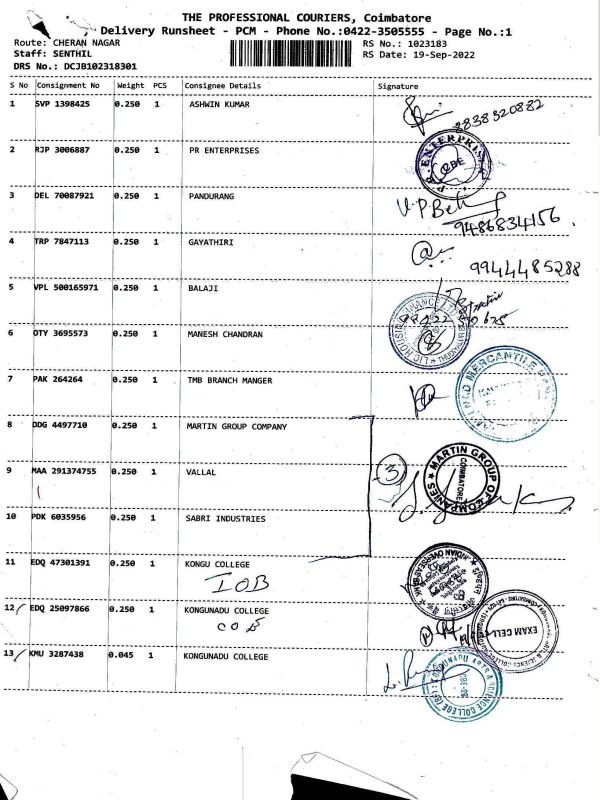 THE PROFESSIONAL COURIERS, Coimbatore
Delivery Runsheet - PCM - Phone No.:0422-3505555 - Page No.:1
Route: CHERAN NAGAR RS No.: 1023183
Staff: SENTHIL RS Date: 19-Sep-2022
DRS No.: DCJB102318301
S No Consignment No Weight PCS Consignee Details Signature
1 SVP 1398425 0.250 1 ASHWIN KUMAR
8838320882
2 RJP 3006887 0.250 1 PR ENTERPRISES
P.R. ENTERPRISES
3 DEL 70087921 0.250 1 PANDURANG
9486834156
4 TRP 7847113 0.250 1 GAYATHIRI
9944485288
5 VPL 500165971 0.250 1 BALAJI
6 OTY 3695573 0.250 1 MANESH CHANDRAN
LIC HOUSING FINANCE LTD
7 PAK 264264 0.250 1 TMB BRANCH MANGER
MERCANTILE BANK
8 DDG 4497710 0.250 1 MARTIN GROUP COMPANY
MARTIN GROUP OF COMPANIES
COIMBATORE
9 MAA 291374755 0.250 1 VALLAL
3
10 PDK 6035956 0.250 1 SABRI INDUSTRIES
11 EDQ 47301391 0.250 1 KONGU COLLEGE
IOB
INDIAN OVERSEAS BANK
12 EDQ 25097866 0.250 1 KONGUNADU COLLEGE
COE
EXAM CELL
13 KMU 3287438 0.045 1 KONGUNADU COLLEGE